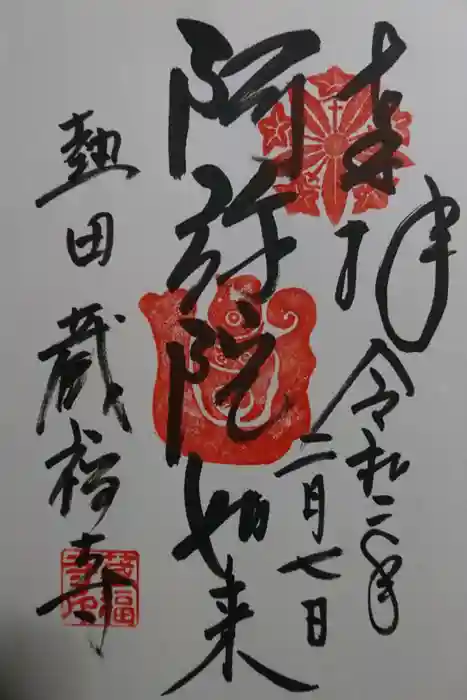 奉拝
令和二年
二月七日
阿弥陀如来
熱田蔵福寺